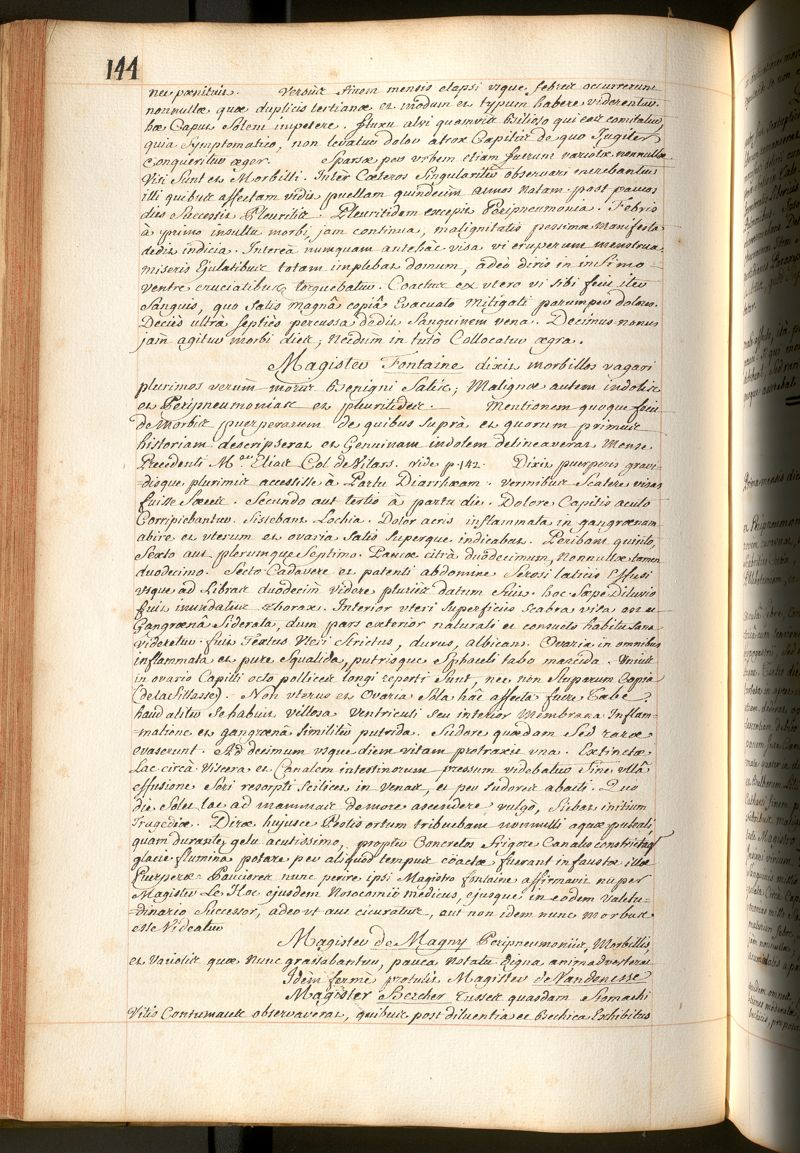 144
nec pænituit. Versùs finem mensis elapsi usque febres occurrerunt
nonnullæ quæ duplicis tertianæ et modum et typum habere viderentur.
hæ Caput Solem impetere. fluxu alvi quamvis bilioso qui eas comitatur,
quia Symptomatico, non levatur dolor atrox Capitis de quo Jugiter
Conqueritur æger. Sparsæ per urbem etiam fuerunt variolæ nonnullæ.
Visi Sunt et Morbilli. Inter Cæteros Singularitèr observari merebantur
illi quibus affectam vidit puellam quindecim annos natam. post paucos
dies Successit Pleuritis. Pleuritidem excepit Peripneumonia. Febris
à primo insultu morbi, jam continua, malignitatis pessimæ manifesta
dedit indicia. Intereà numquam antehac visa vi eruperunt menstrua.
miseris Ejulatibus totam implebat domum, adeò diris in insimo
ventre cruciatibus torquebatur. Coactus ex utero vi sibi fecit iter
Sanguis, quo Satis magnâ copiâ Evacuato Mitigati parumper dolores.
Deciès ultrà septiès percussa dedit Sanguinem vena. Decimus nonus
jam agitur morbi dies; necdum in tuto Collocatur ægra.
Magister Fontaine dixit morbillos vagari
plurimos verùm moris Benigni Satis; Malignæ autem indolis
et Peripneumonias et pluritides. Mentionem quoque fecit
de Morbis puerperarum de quibus Suprà et quorum primus
historiam descripserat et Genuinam indolem delineaverat Mense
Precedenti M.er Elias Col de Vilars. vide p. 142. Dixit puerperis gravi=
=disque plurimis accessisse à Partu Diarrhæam. vermibus Scatere visas
fuisse Sæces. Secundo aut tertio à partu die. Dolore Capitis acuto
Corripiebantur. Sistebant Lochia. Dolor acris inflammata in gangrænam
abire et uterum et ovaria Satis Superque indicabat. Peribant quinto,
Sexto aut plerumque Septimo. Paucæ citrà duodecimum, Nonnullæ tamen
duodecimo. Secto Cadavere et patenti abdomine Serosi laticis Effusi
usque ad Libras duodecim videre pluries datum fuit. hoc Sæpe Diluvio
fuit inundatus thorax. Interior uteri Superficies Scabra visa est et
Gangrænâ Siderata, dum pars exterior naturali et consueto habitu Sana
videretur. fuit Textus Uteri Strictus, durus, albicans. Ovaria in omnibus
inflammata et pure Squalida, putrisque Sphaceli tabo marcida. Unius
in ovario Capilli octo pollices longi reperti Sunt, nec non Stuparum Copia
(de la filasse). Non uterus et Ovaria Sola hâc affecta fuere tabe.
haud aliter Se habuit villosa Ventriculi Seu interior Membrana Inflam=
=matione et gangrænâ Similiter putrida. Sudore quædam Sed raræ
evaserunt. Ad decimum usque diem vitam protraxit una. Extinctæ
Lac circà Viscera et Canalem intestinorum pressum videbatur Sine ullâ
effusione Seri resorpti Scilicet in venas, et per Sudores abacti. Quo
die Solet lac ad mammas de more ascendere vulgò, fiebat initium
Tragediæ. Diræ hujusce Pestis ortum tribuebant nonnulli aquæ puteali,
quam durante gelu acutissimo, propter Concretos frigore Canales constrictaq
glacie flumina potare per aliquod tempus coactæ fuerant infaustæ illæ
Puerperæ. Pauciores nunc perire ipsi Magistro fontaine affirmavit nuper
Magister Le Hoc ejusdem Nosocomii medicus, ejusque in eodem Valetu=
=dinario Successor, adeo ut aut cicuratus, aut non idem nunc Morbus
esse Videatur.
Magister de Magny Peripneumoniis, Morbillis
et Variolis quæ Nunc grassabantur, pauca Notatu digna animadverterat
Idem fermè protulit Magister de Vandenesse
Magister Bercher Tusses quasdam Stomachi
Vitio Contumaces observaverat, quibus post diluentia et Bechica Exhibitus